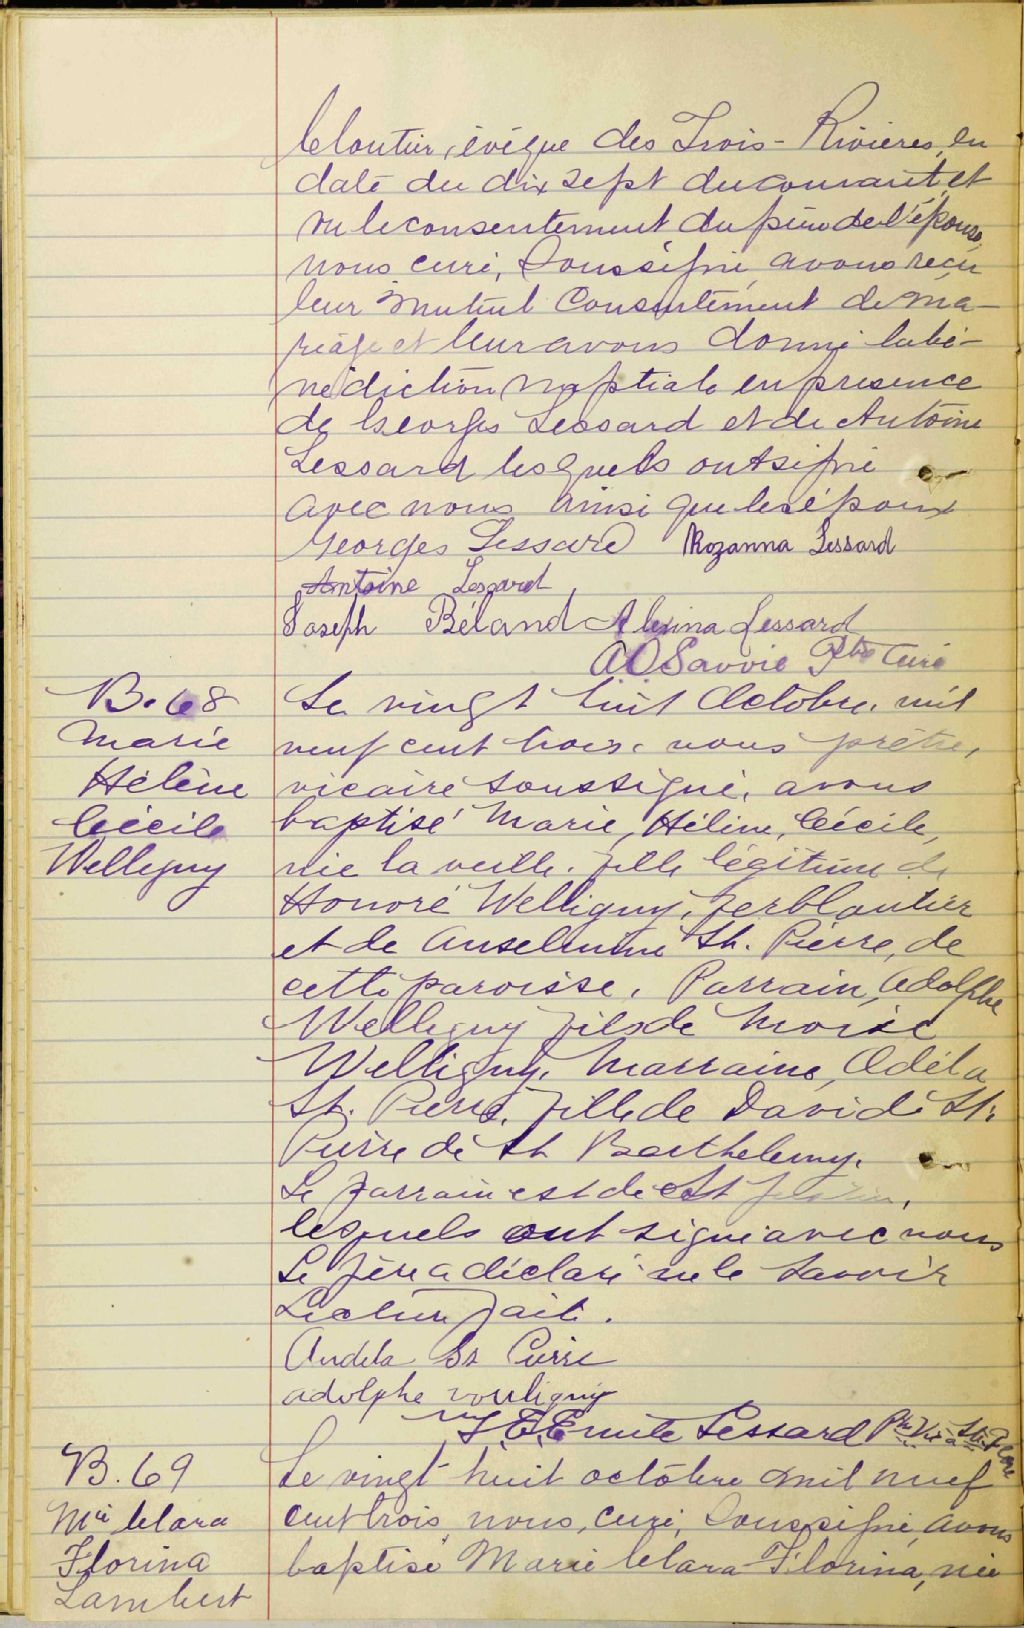 Cloutier, évêque des Trois-Rivières, en
date du dix sept du courant, et
vu le consentement du père de l'épouse,
nous curé, soussigné, avons reçu
leur mutuel consentement de ma-
riage et leur avons donné la bé-
nédiction nuptiale en présence
de Georges Lessard et de Antoine
Lessard lesquels ont signé
avec nous ainsi que les époux
Georges Lessard Rozanna Lessard
Antoine Lessard
Joseph Béland Alexina Lessard
A O Savoie Ptre Curé
B. 68
Marie
Hélène
Cécile
Welligny
Le vingt huit Octobre, mil
neuf cent trois, nous prêtre,
vicaire soussigné, avons
baptisé Marie, Hélène, Cécile,
née la veille, fille légitime de
Honoré Welligny, ferblantier
et de Anselmine St. Pierre, de
cette paroisse. Parrain, Adolphe
Welligny fils de Moïse
Welligny. Marraine, Adéla
St. Pierre, fille de David St.
Pierre de St Barthelemy.
Le parrain est de St
lesquels ont signé avec nous
Le père a déclaré ne le savoir
Lecture faite.
Audela St Pierre
adolphe vouligny
J. E. Emile Lessard Ptre Vic à
B. 69
Mie Clara
Florina
Lambert
Le vingt huit octobre mil neuf
cent trois, nous, curé, soussigné, avons
baptisé Marie Clara Florina, née